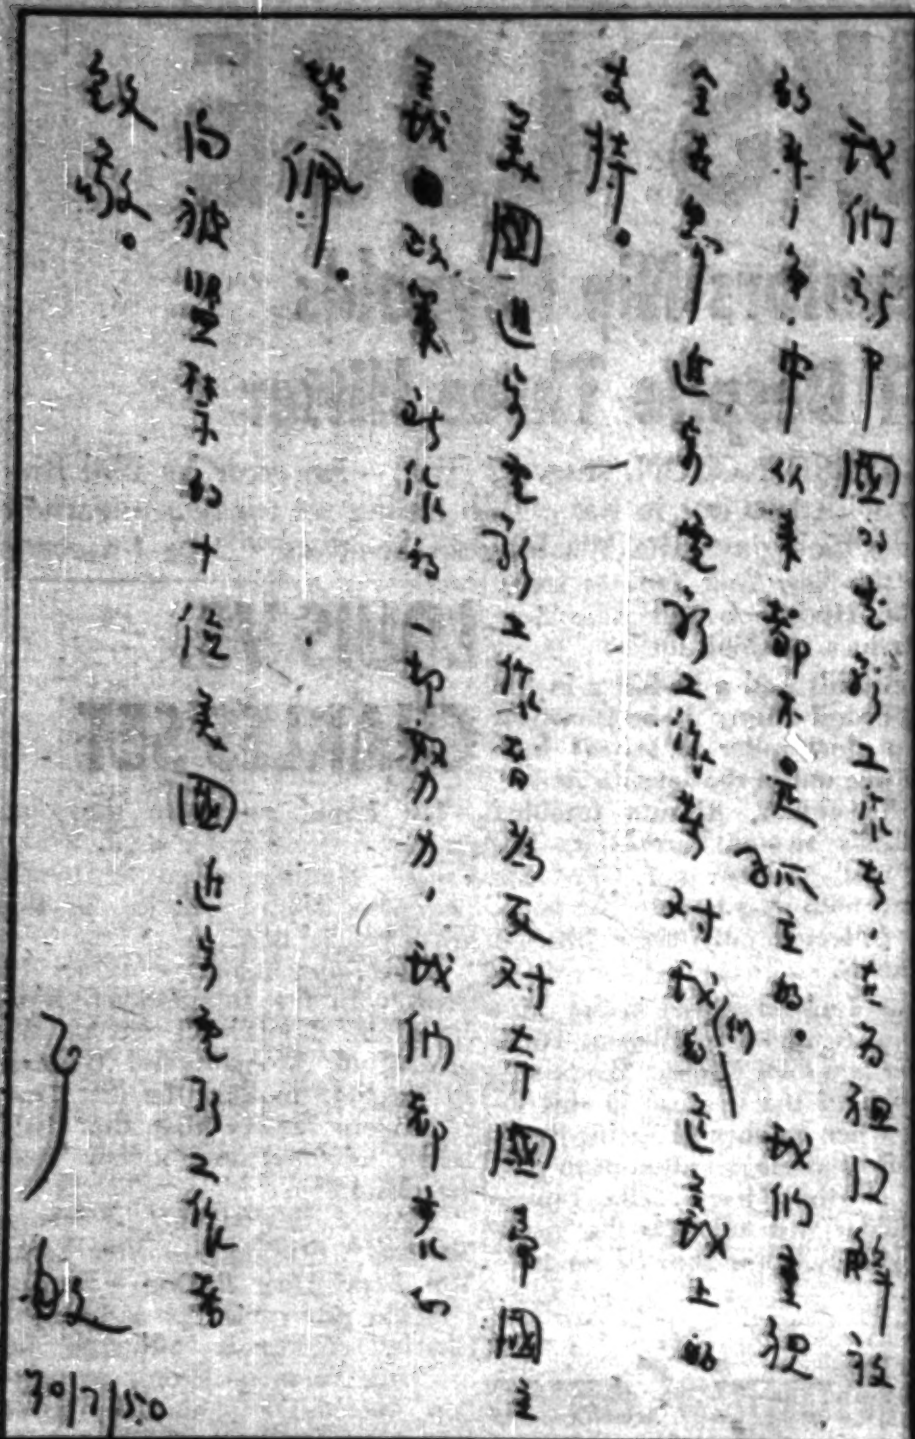 我们新中國的電影工作者,在为祖口解放
的斗争中从来都不是孤立的。我们重視
全世界進步電影工作者对我们的道義上的
支持。
美國進步電影工作者為反对本國帝國主
義政策所作的一切努力,我们都表示
欽佩。
向被監禁的十位美國進步電影工作者
致敬。
30/7/50